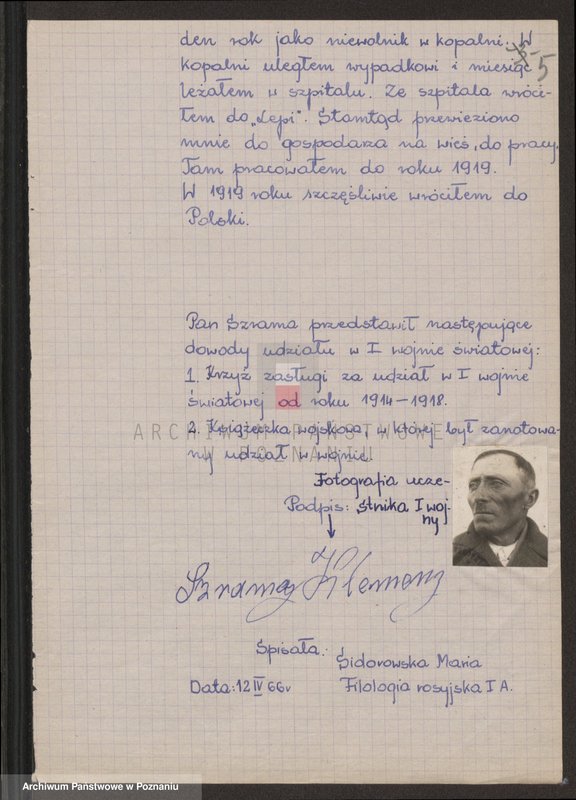 den rok jako niewolnik w kopalni. W
5
kopalni uległem wypadkowi i miesiąc
leżałem w szpitalu. Ze szpitala wróci-
łem do „Lepi". Stamtąd przewieziono
mnie do gospodarza na wieś, do pracy.
Tam pracowałem do roku 1919.
W 1919 roku szczęśliwie wróciłem do
Polski.
Pan Szrama przedstawił następujące
dowody udziału w I wojnie światowej:
1. Krzyż zasługi za udział w I wojnie
światowej od roku 1914–1918.
2. Książeczka wojskowa, w której był zanotowa-
ny udział w wojnie!
ARCHIWUM PAŃSTWOWE
W POZNANIU
Fotografia ucze-
stnika I woj-
ny
Podpis:
Szrama Klemens
Spisała: Sidorowska Maria
Data: 12 IV 66r Filologia rosyjska I A.
Archiwum Państwowe w Poznaniu